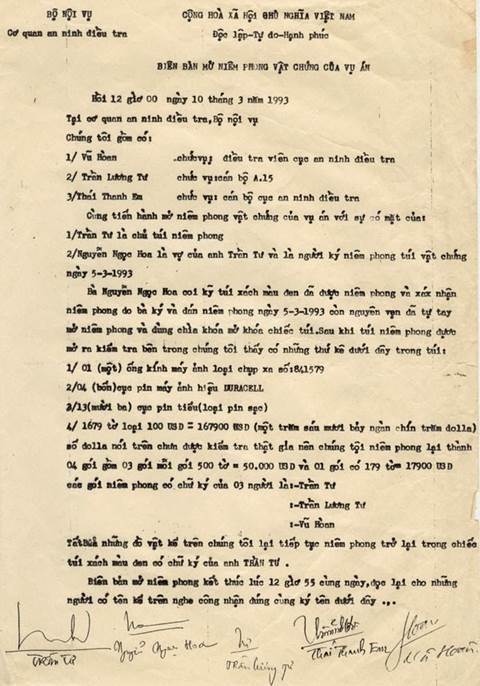 BỘ NỘI VỤ CỘNG HOÀ XÃ HỘI CHỦ NGHĨA VIỆT NAM
Cơ quan an ninh điều tra Độc lập-Tự do-Hạnh phúc
BIÊN BẢN MỞ NIÊM PHONG VẬT CHỨNG CỦA VỤ ÁN
Hồi 12 giờ 00 ngày 10 tháng 3 năm 1993
Tại cơ quan an ninh điều tra,Bộ nội vụ
Chúng tôi gồm có:
1/ Vũ Hoan .chứcvụ: điều tra viên cục an ninh điều tra
2/ Trần Lương Tư chức vụ:cán bộ A.15
3/Thái Thanh Em chức vụ: cán bộ cục an ninh điều tra
Cùng tiến hành mở niêm phong vật chứng của vụ án với sự có mặt của:
1/Trần Tư là chủ túi niêm phong
2/Nguyễn Ngọc Hoa là vợ của anh Trần Tư và là người ký niêm phong túi vật chứng
ngày 5-3-1993
Bà Nguyễn Ngọc Hoa coi kỹ túi xách màu đen đã được niêm phong và xác nhận
niêm phong do bà ký và dán niêm phong ngày 5-3-1993 còn nguyên vẹn đã tự tay
mở niêm phong và dùng chìa khóa mở khóa chiếc túi.Sau khi túi niêm phong được
mở ra kiểm tra bên trong chúng tôi thấy có những thứ kê dưới đây trong túi:
1/ 01 (một) ống kính máy ảnh loại chụp xa số:841579
2/04 (bốn)cục pin máy ảnh hiệu DURACELL
3/13(mười ba) cục pin tiểu(loại pin sạc)
4/ 1679 tờ loại 100 USD = 167900 USD (một trăm sáu mươi bảy ngàn chín trăm dolla)
số dolla nói trên chưa được kiểm tra thật giả nên chúng tội niêm phong lại thành
04 gói gồm 03 gói mỗi gói 500 tờ = 50.000 USD và 01 gói có 179 tờ= 17900 USD
các gói niêm phong có chữ ký của 03 người là:-Trần Tư
:-Trần Lương Tư
:-Vũ Hoan
Tất cả những đồ vật kể trên chúng tôi lại tiếp tục niêm phong trở lại trong chiếc
túi xách màu đen có chữ ký của anh TRẦN TƯ .
Biên bản mở niêm phong kết thúc lúc 12 giờ 55 cùng ngày,đọc lại cho những
người có tên kể trên nghe công nhận đúng cùng ký tên dưới đây ...
Trần Tư Nguyễn Ngọc Hoa Trần Lương Tư Thái Thanh Em Vũ Hoan